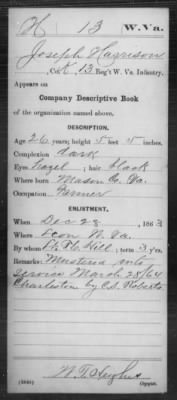 H 13 W. Va.
Joseph Harrison
Co. K, 13 Reg't W. Va. Infantry.
Appears on
Company Descriptive Book
of the organization named above.
DESCRIPTION.
Age 26 years; height 5 feet 5 inches.
Complexion Dark
Eyes Hazel ; hair black
Where born Mason Co. Va.
Occupation Farmer
ENLISTMENT.
When Dec 28 , 1863
Where Leon W. Va.
By whom H. Hill ; term 3 y'rs.
Remarks: Mustered into
service March 28/64
Charleston by C.S. Roberts
W. T. Hughes
Copyist.